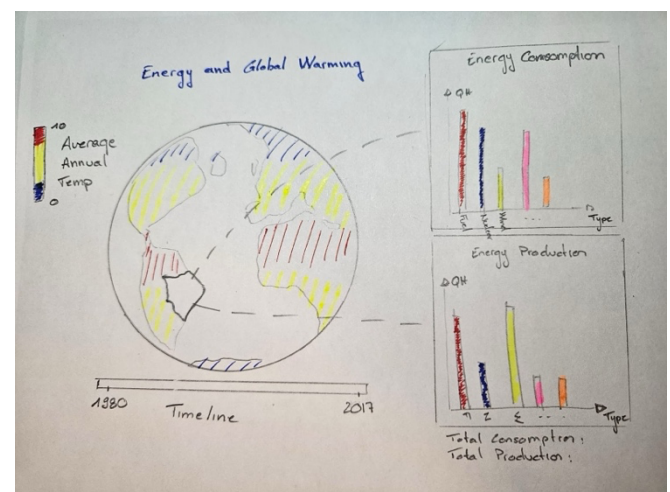 Energy and Global Warming
10
Average
Annual
Temp
0
1980
Timeline
2017
Energy Consomption
QH
Fuel
Nuclear
Wind
...
Type
Energy Production
QH
F
N
W
...
Type
Total Consomption:
Total Production: